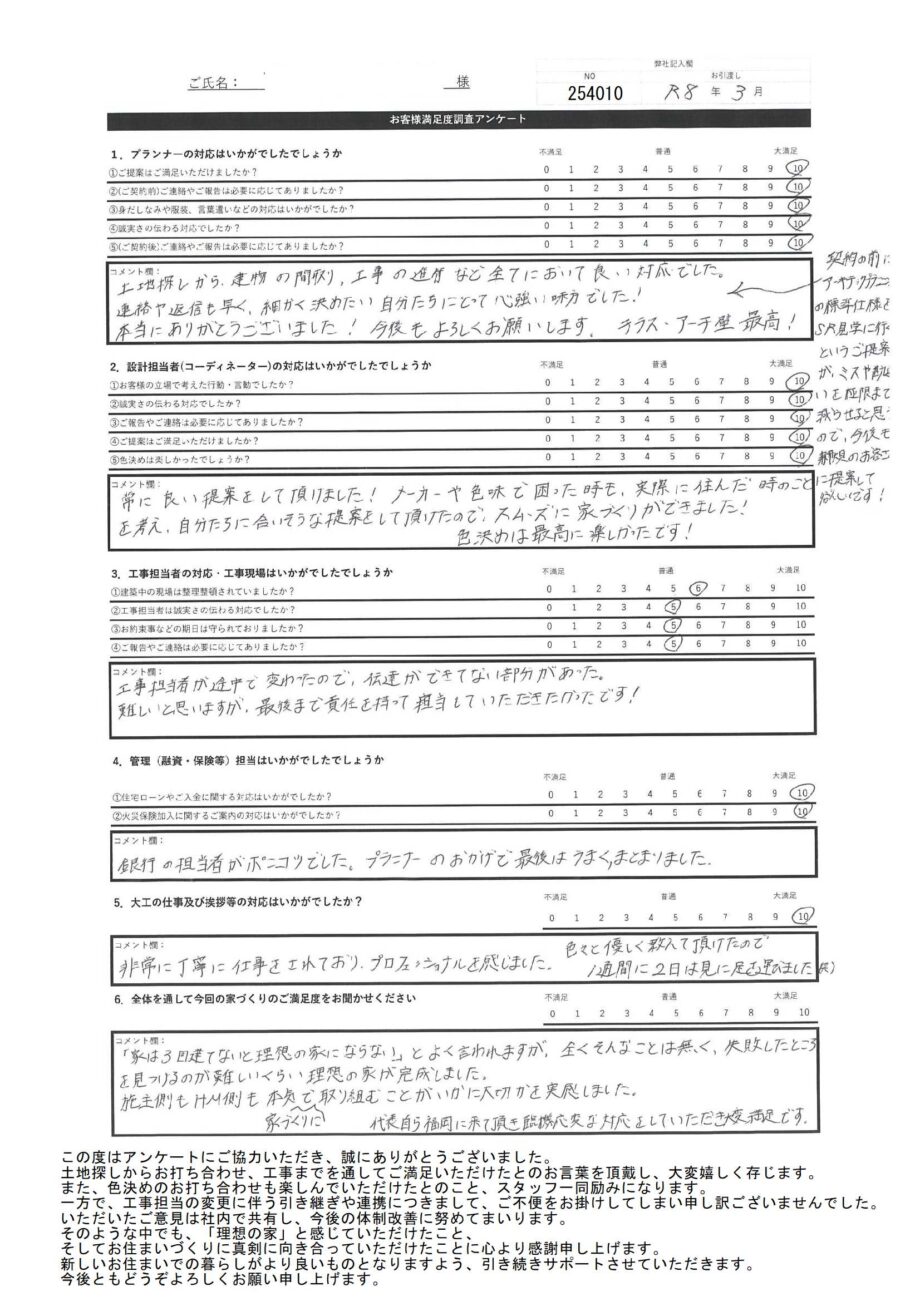 弊社記入欄
ご氏名： 様
NO お引渡し
254010 R8 年 3 月
お客様満足度調査アンケート
1．プランナーの対応はいかがでしたでしょうか 不満足 普通 大満足
①ご提案はご満足いただけましたか？ 0 1 2 3 4 5 6 7 8 9 10
②(ご契約前)ご連絡やご報告は必要に応じてありましたか？ 0 1 2 3 4 5 6 7 8 9 10
③身だしなみや服装、言葉遣いなどの対応はいかがでしたか？ 0 1 2 3 4 5 6 7 8 9 10
④誠実さの伝わる対応でしたか？ 0 1 2 3 4 5 6 7 8 9 10
⑤(ご契約後)ご連絡やご報告は必要に応じてありましたか？ 0 1 2 3 4 5 6 7 8 9 10
コメント欄：
土地探しから、建物の間取り，工事の進捗など全てにおいて良い対応でした。
連絡や返信も早く、細かく決めたい自分たちにとって心強い味方でした！
本当にありがとうございました！ 今後もよろしくお願いします。 テラス・アーチ壁最高！
契約の前に
の標準仕様を
S.R見学に行
というご提案
が、ミスや
いを極限まで
減らせると思う
ので、今後も
新規のお客さ
に提案して
欲しいです！
2．設計担当者(コーディネーター)の対応はいかがでしたでしょうか 不満足 普通 大満足
①お客様の立場で考えた行動・言動でしたか？ 0 1 2 3 4 5 6 7 8 9 10
②誠実さの伝わる対応でしたか？ 0 1 2 3 4 5 6 7 8 9 10
③ご報告やご連絡は必要に応じてありましたか？ 0 1 2 3 4 5 6 7 8 9 10
④ご提案はご満足いただけましたか？ 0 1 2 3 4 5 6 7 8 9 10
⑤色決めは楽しかったでしょうか？ 0 1 2 3 4 5 6 7 8 9 10
コメント欄：
常に良い提案をして頂けました！ メーカーや色味で困った時も、実際に住んだ時のこと
を考え、自分たちに合いそうな提案をして頂けたので、スムーズに家づくりができました！
色決めは最高に楽しかったです！
3．工事担当者の対応・工事現場はいかがでしたでしょうか 不満足 普通 大満足
①建築中の現場は整理整頓されていましたか？ 0 1 2 3 4 5 6 7 8 9 10
②工事担当者は誠実さの伝わる対応でしたか？ 0 1 2 3 4 5 6 7 8 9 10
③お約束事などの期日は守られておりましたか？ 0 1 2 3 4 5 6 7 8 9 10
④ご報告やご連絡は必要に応じてありましたか？ 0 1 2 3 4 5 6 7 8 9 10
コメント欄：
工事担当者が途中で変わったので、伝達ができてない部分があった。
難しいと思いますが、最後まで責任を持って担当していただきたかったです！
4．管理（融資・保険等）担当はいかがでしたでしょうか
不満足 普通 大満足
①住宅ローンやご入金に関する対応はいかがでしたか？ 0 1 2 3 4 5 6 7 8 9 10
②火災保険加入に関するご案内の対応はいかがでしたか？ 0 1 2 3 4 5 6 7 8 9 10
コメント欄：
銀行の担当者がポンコツでした。プランナーのおかげで最後はうまくまとまりました。
5．大工の仕事及び挨拶等の対応はいかがでしたか？ 不満足 普通 大満足
0 1 2 3 4 5 6 7 8 9 10
コメント欄：
非常に丁寧に仕事をされており、プロフェッショナルを感じました。 色々と優しく教えて頂けたので
1週間に2日は見に足を運びました(笑)
6．全体を通して今回の家づくりのご満足度をお聞かせください 不満足 普通 大満足
0 1 2 3 4 5 6 7 8 9 10
コメント欄：
「家は3回建てないと理想の家にならない」とよく言われますが、全くそんなことは無く、失敗したところ
を見つけるのが難しいくらい理想の家が完成しました。
施主側もHM側も本気で取り組むことがいかに大切かを実感しました。
家づくりに 代表自ら福岡に来て頂き臨機応変な対応をしていただき大変満足です。
この度はアンケートにご協力いただき、誠にありがとうございました。
土地探しからお打ち合わせ、工事までを通してご満足いただけたとのお言葉を頂戴し、大変嬉しく存じます。
また、色決めのお打ち合わせも楽しんでいただけたとのこと、スタッフ一同励みになります。
一方で、工事担当の変更に伴う引き継ぎや連携につきまして、ご不便をお掛けしてしまい申し訳ございませんでした。
いただいたご意見は社内で共有し、今後の体制改善に努めてまいります。
そのような中でも、「理想の家」と感じていただけたこと、
そしてお住まいづくりに真剣に向き合っていただけたことに心より感謝申し上げます。
新しいお住まいでの暮らしがより良いものとなりますよう、引き続きサポートさせていただきます。
今後ともどうぞよろしくお願い申し上げます。